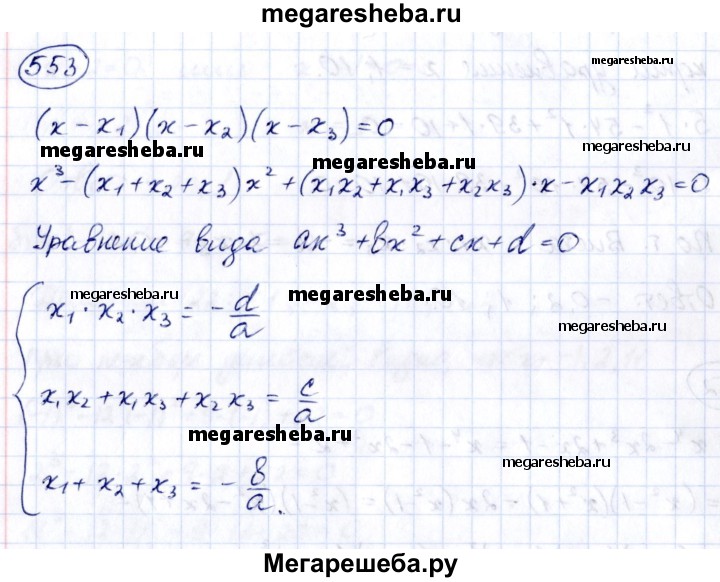 megaresheba.ru
553
megaresheba.ru
(x - x₁)(x - x₂)(x - x₃) = 0
megaresheba.ru
megaresheba.ru
megaresheba.ru
x³ - (x₁ + x₂ + x₃)x² + (x₁x₂ + x₁x₃ + x₂x₃)·x - x₁x₂x₃ = 0
Уравнение вида ax³ + bx² + cx + d = 0
megaresheba.ru
megaresheba.ru
x₁·x₂·x₃ = -d/a
megaresheba.ru
x₁x₂ + x₁x₃ + x₂x₃ = c/a
megaresheba.ru
megaresheba.ru
x₁ + x₂ + x₃ = -b/a.
megaresheba.ru
Мегарешеба.ру